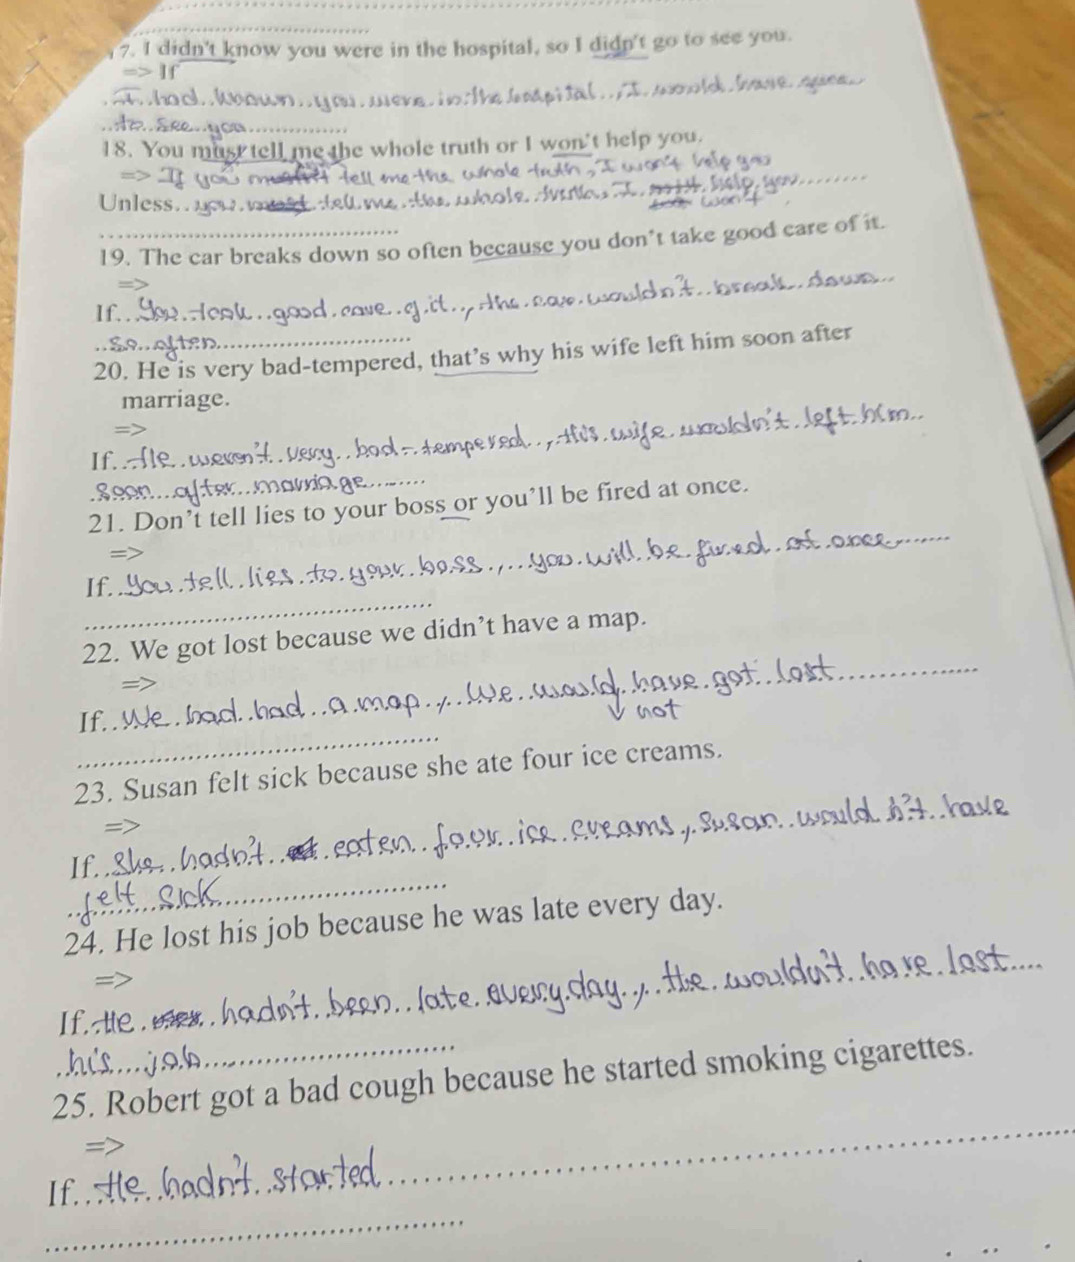 17. I didn't know you were in the hospital, so I didn't go to see you.
=> If
I had known you were in the hospital, I would have gone
to see you
18. You must tell me the whole truth or I won't help you.
=> If you mustn't tell me the whole truth, I won't help you
Unless you must tell me the whole I help you
won't
19. The car breaks down so often because you don't take good care of it.
=>
If You took good care of it, the care wouldn't break down
so often
20. He is very bad-tempered, that's why his wife left him soon after
marriage.
=>
If He weren't very bad-tempered, his wife wouldn't left him
soon after marriage
21. Don't tell lies to your boss or you'll be fired at once.
=>
If You tell lies to your boss, you will be fired at once
22. We got lost because we didn't have a map.
=>
If We had had a map, We would have got lost
not
23. Susan felt sick because she ate four ice creams.
=>
If She hadn't eaten four ice creams, Susan wouldn't have
felt sick
24. He lost his job because he was late every day.
=>
If He hadn't been late every day, He wouldn't have lost
his job
25. Robert got a bad cough because he started smoking cigarettes.
=>
If He hadn't started